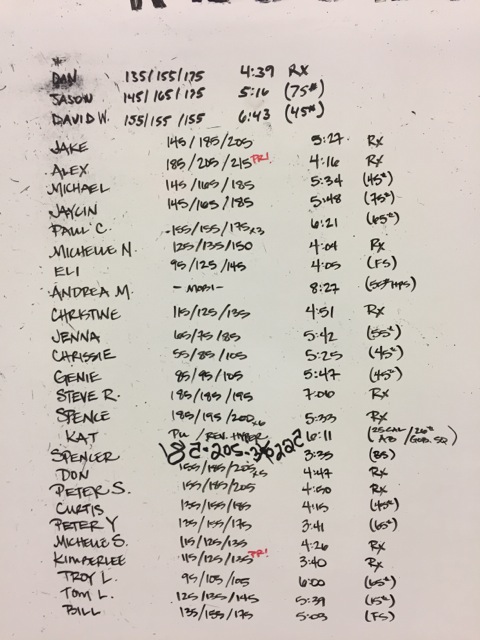 *
DAN 135/155/175 4:39 RX
JASON 145/165/175 5:16 (75#)
DAVID W. 135/155/155 6:43 (45#)
JAKE 145/185/205 5:27 RX
ALEX 185/205/215 PR! 4:16 RX
MICHAEL 145/165/185 5:34 (45#)
JAYLIN 145/165/185 5:48 (75#)
PAUL C. 155/155/175x3 6:21 (65#)
MICHELLE N. 125/135/150 4:04 RX
ELI 95/125/145 4:05 (FS)
ANDREA M. -MOBI- 8:27
CHRISTINE 115/125/135 4:51 RX
JENNA 65/75/85 5:42 (55#)
CHRISSIE 55/85/105 5:25 (45#)
GENIE 85/95/105 5:47 (45#)
STEVE R. 185/185/195 7:00 RX
SPENCE 185/195/200x6 5:33 RX
KAT PU/REV. HYPER 6:11 (25CAL AB/26# GOB. SQ)
SPENCER 185-205- 3:35 (BS)
DON 155/185/205x5 4:47 RX
PETER S. 155/185/205 4:50 RX
CURTIS 135/155/185 4:15 (45#)
PETER Y 135/155/175 3:41 (65#)
MICHELLE S. 115/125/135 4:26 RX
KIMBERLEE 115/125/135 PR! 3:40 RX
TROY L. 95/105/105 6:00 (65#)
TOM L. 125/135/145 5:39 (15#)
BILL 135/155/175 5:03 (FS)